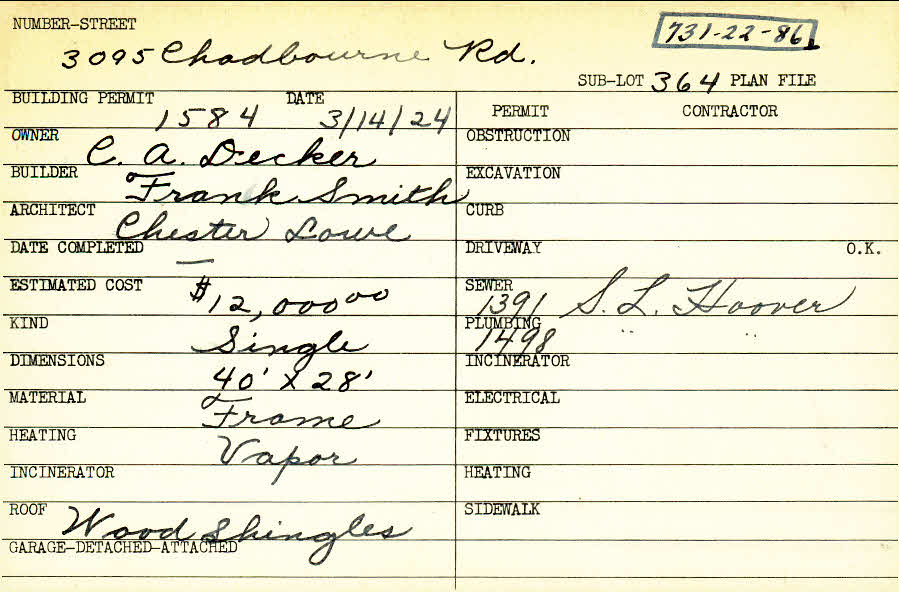 NUMBER-STREET
731-22-86
3095 Chadbourne Rd.
SUB-LOT 364 PLAN FILE
BUILDING PERMIT 1584 DATE 3/14/24
OWNER C. A. Decker
BUILDER Frank Smith
ARCHITECT Chester Lowe
DATE COMPLETED —
ESTIMATED COST $12,000 00
KIND Single
DIMENSIONS 40' X 28'
MATERIAL Frame
HEATING Vapor
INCINERATOR
ROOF Wood Shingles
GARAGE-DETACHED-ATTACHED
PERMIT CONTRACTOR
OBSTRUCTION
EXCAVATION
CURB
DRIVEWAY O.K.
SEWER 1391 S. L. Hoover
PLUMBING 1498 " "
INCINERATOR
ELECTRICAL
FIXTURES
HEATING
SIDEWALK